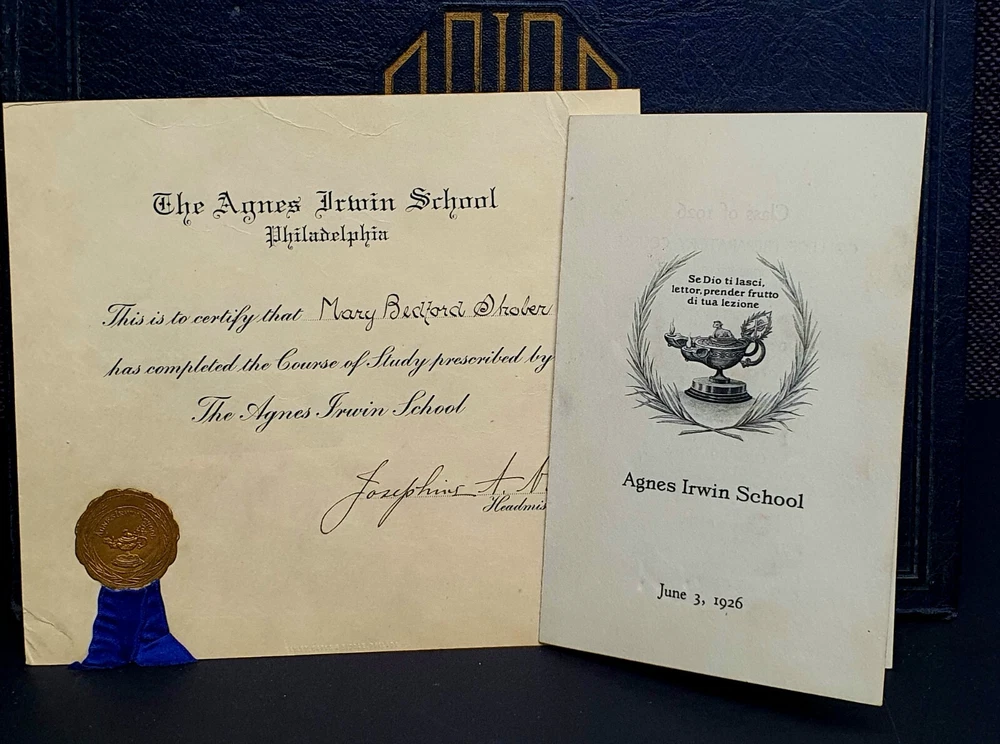 The Agnes Irwin School
Philadelphia
This is to certify that Mary Bedford Strober
has completed the Course of Study prescribed by
The Agnes Irwin School
Josephine A. N
Headmis
Class of 1926
Se Dio ti lasci,
lettor, prender frutto
di tua lezione
Agnes Irwin School
June 3, 1926